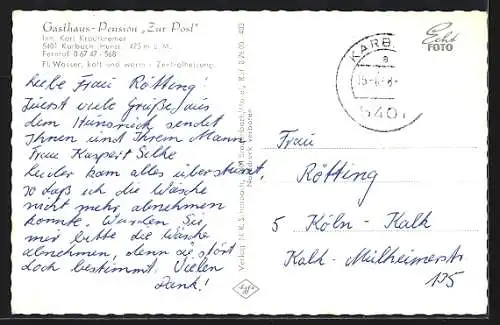 Gasthaus-Pension „Zur Post"
Inh. Karl Krautkremer
5401 Karbach (Hunsr.) · 475 m ü. M.
Fernruf 0 67 47 - 568
Fl. Wasser, kalt und warm - Zentralheizung
Liebe Frau Rötting!
Zuerst viele Grüße aus
dem Hunsrück sendet
Ihnen und Ihrem Mann
Frau Kaspert Silke
Leider kam alles überstürzt,
so daß ich die Wäsche
nicht mehr abnehmen
konnte. Würden Sie
mir bitte die Wäsche
abnehmen, denn die stört
doch bestimmt. Vielen
Dank!
Nachdruck verboten
KARB
a
5401
Echt
FOTO
Frau
Rötting
5 Köln-Kalk
Kalk-Mülheimerstr
125